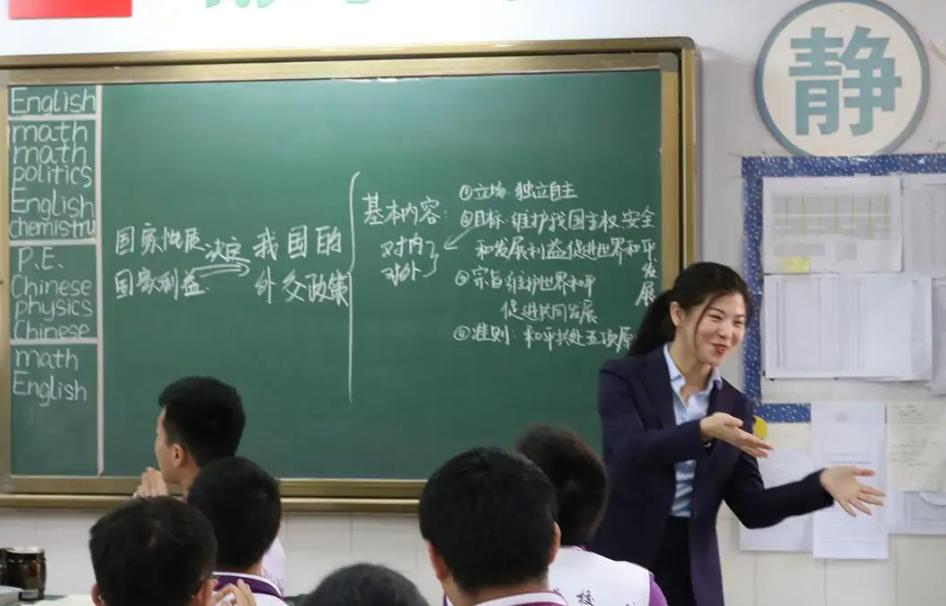 静
English
math
math
politics
English
chemistry
P.E.
Chinese
physics
Chinese
math
English
国家性质
国家利益
决定
我国的
外交政策
基本内容:
对内
对外
①立场 独立自主
②目标:维护我国主权,安全
和发展利益促进世界和平
发展
③宗旨:维护世界和平
促进共同发展
④准则:和平共处五项原
校